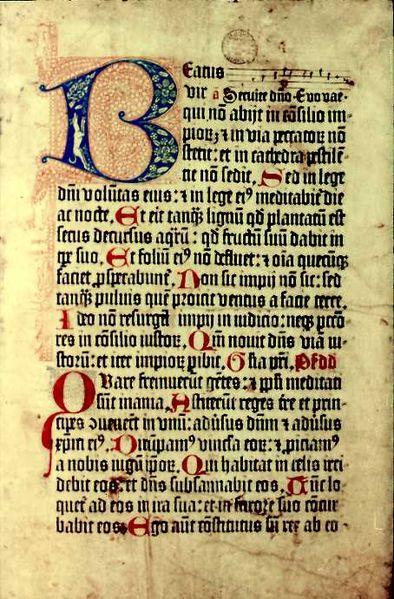 Beatus
vir a Seruite dño. Euouae.
qui nō abijt in cōsilio im
pioꝝ ⁊ in via pccatoꝝ nō
stetit: et in cathedra pestilē
tie nō sedit. Sed in lege
dñi volūtas eius: ⁊ in lege eiꝰ meditabit̄ die
ac nocte. Et erit tanqꝫ lignū qd̄ plantatū est
secus decursus aqꝝū: qd̄ fructū suū dabit in
tꝑe suo. Et foliū eiꝰ nō defluet: ⁊ oīa quecūqꝫ
faciet ꝓsperabunt̄. Non sic impij nō sic: sed
tanqꝫ puluis quē proicit ventus a facie terre.
Ideo nō resurgēt impij in iudicio: neqꝫ pctō
res in cōsilio iustoꝝ. Qm̄ nouit dñs viā iu
stoꝝū: et iter impioꝝ ꝑibit. Gl̄ia pr̄i. Ps. dd
Quare fremuerūt gētes: ⁊ pp̄li meditati
sūt inania. Astiterūt reges tr̄e et prin
cipes ꝯuenerūt in vnū: aduersus dñm ⁊ aduersus
xp̄m eiꝰ. Dirūpamꝰ vincl̓a eoꝝ: ⁊ ꝓiciamꝰ
a nobis iugū ip̄oꝝ. Qui habitat in celis irri
debit eos: et dñs subsannabit eos. Tūc lo
quet̄ ad eos in ira sua: et in furore suo cōtur
babit eos. Ego aūt cōstitutus sū rex ab eo